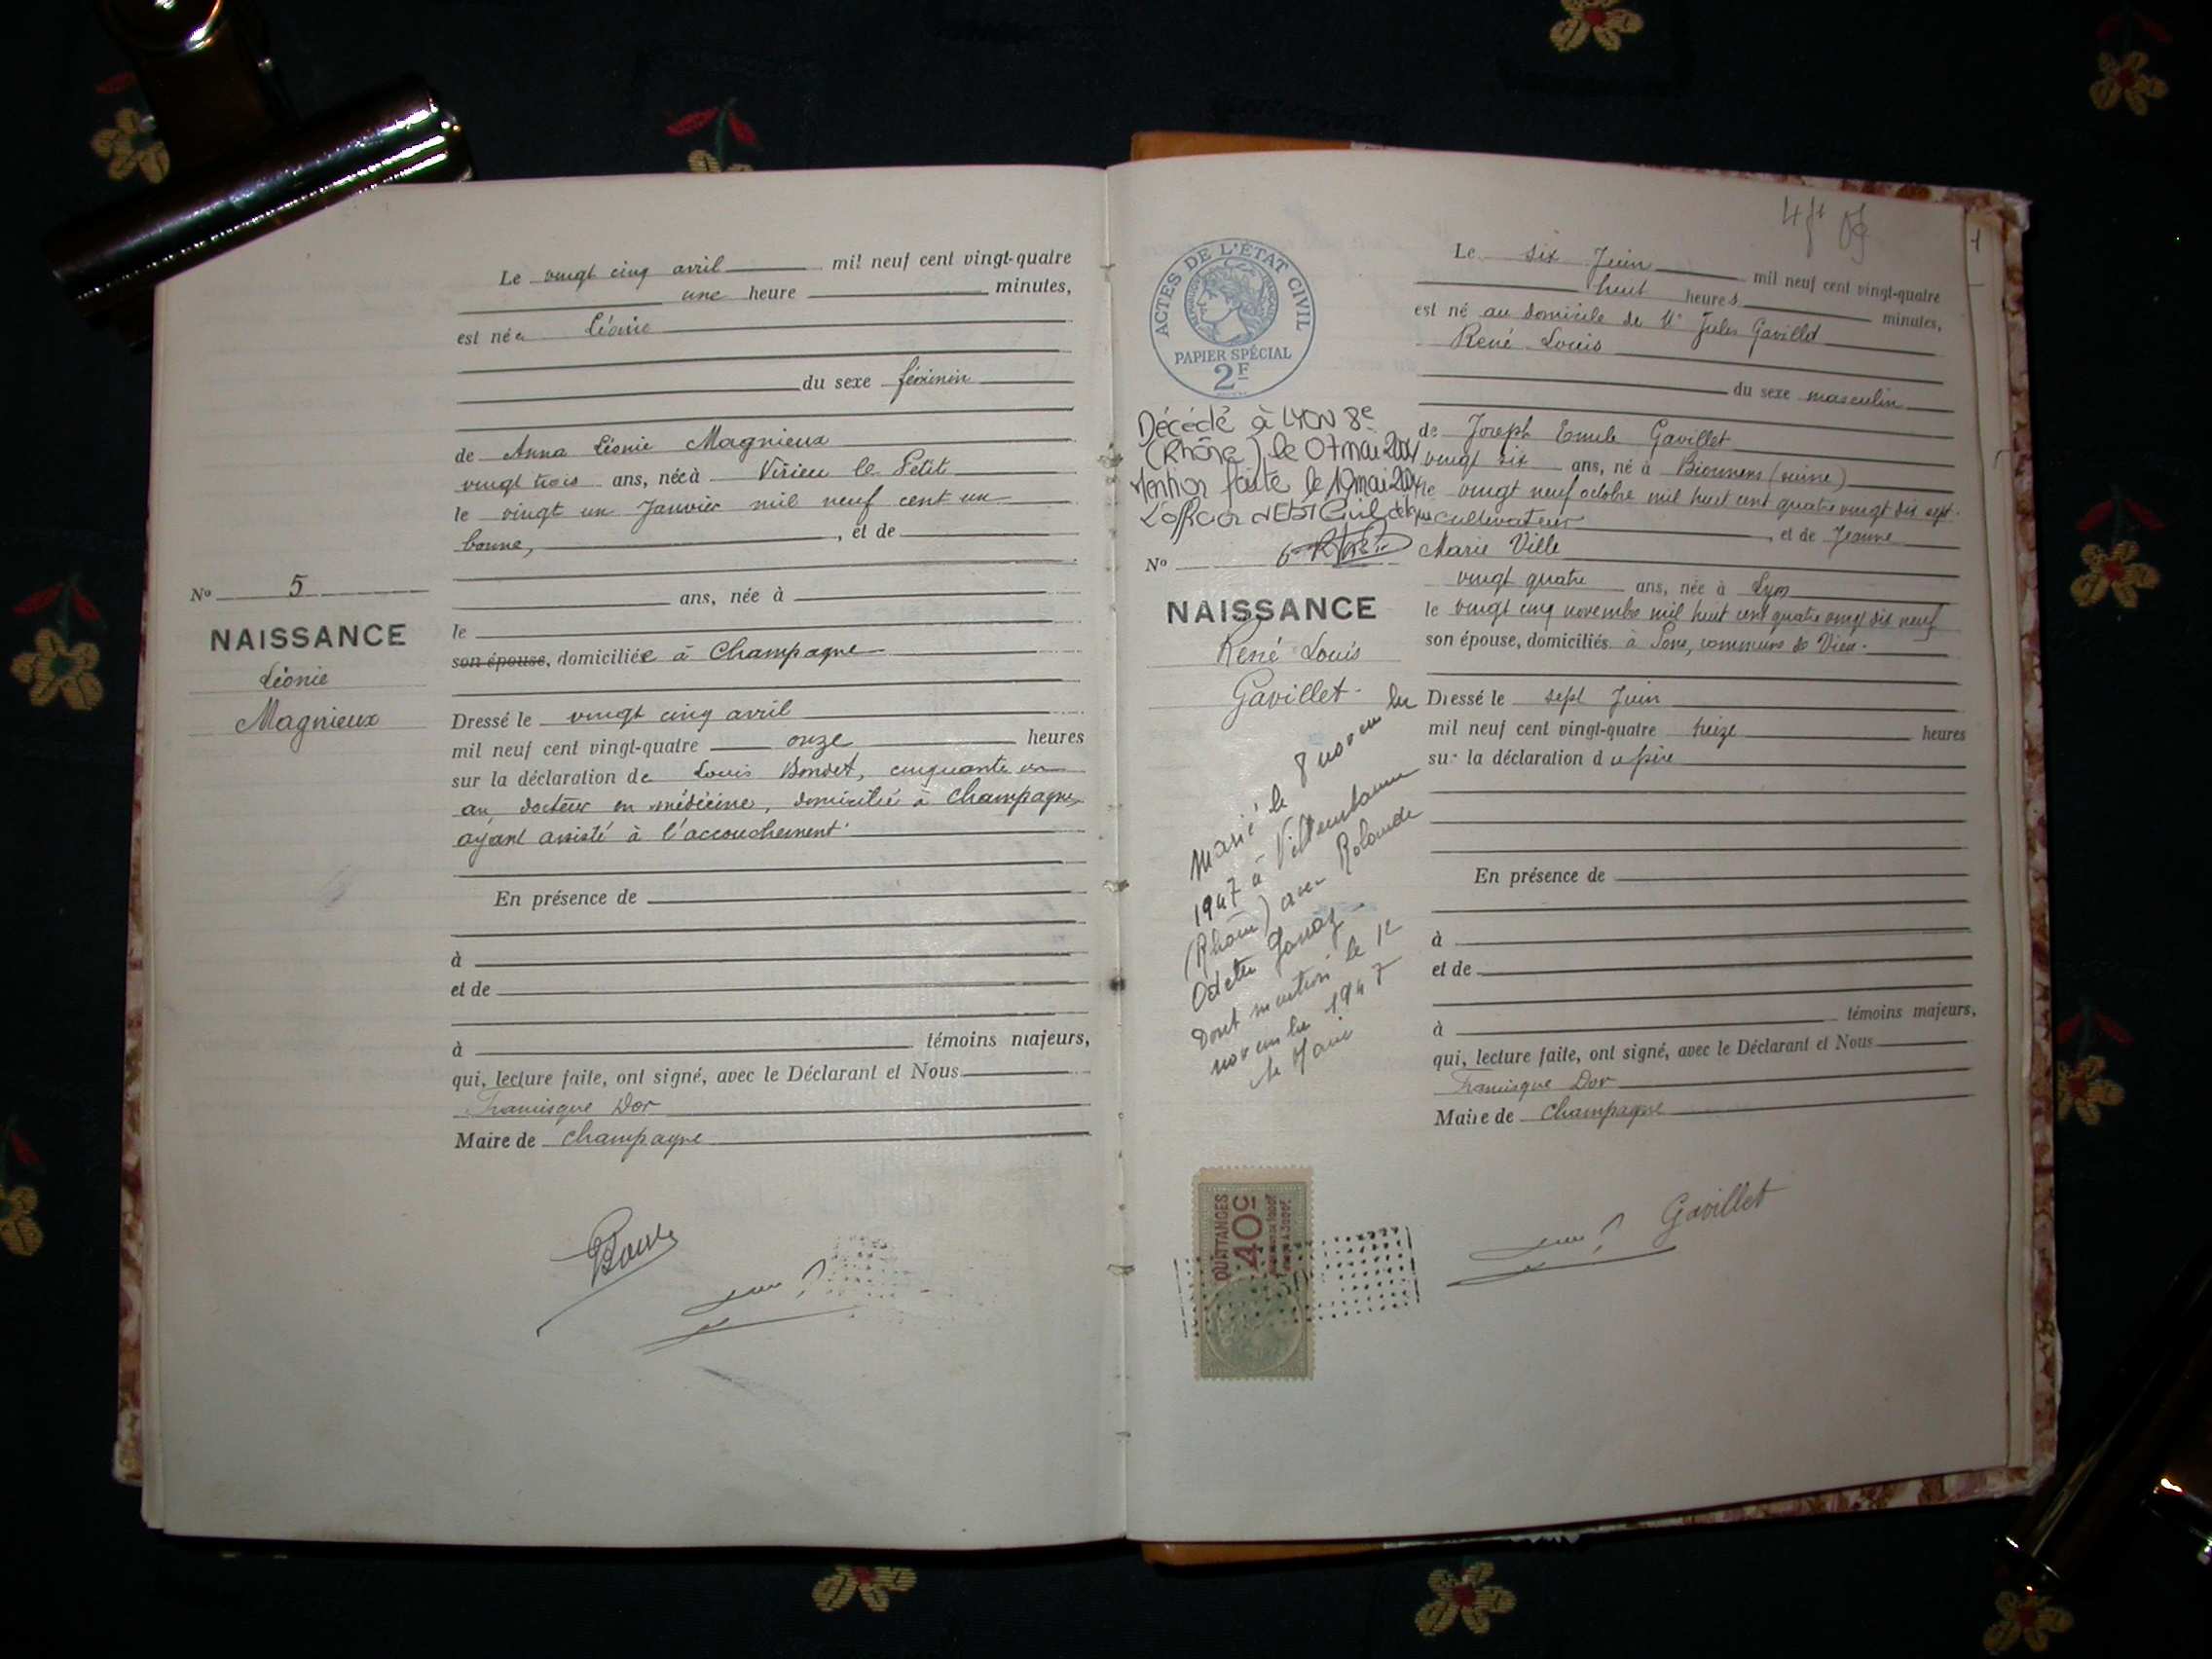 Le vingt cinq avril mil neuf cent vingt-quatre
une heure minutes,
est née Léonie
du sexe féminin
de Anna Léonie Magnieux
vingt trois ans, née à Virieu le Petit
le vingt un Janvier mil neuf cent un
bonne, , et de
ans, née à
le
son épouse, domiciliée à Champagne
Dressé le vingt cinq avril
mil neuf cent vingt-quatre onze heures
sur la déclaration de Louis Bondet, cinquante un
an, docteur en médecine, domicilié à Champagne,
ayant assisté à l'accouchement.
En présence de
à
et de
à témoins majeurs,
qui, lecture faite, ont signé, avec le Déclarant et Nous
Francisque Dor
Maire de Champagne
No 5
NAISSANCE
Léonie
Magnieux
ACTES DE L'ÉTAT CIVIL
PAPIER SPÉCIAL
2F
Décédé à LYON 8e
(Rhône), le 07 mai 2004
Mention faite le 10 mai 2004
L'officier d'Etat Civil
No
NAISSANCE
René Louis
Gavillet
Marié le 8 novembre
1947 à Villeurbanne
(Rhône) avec Rolande
Odette
Dont mention le 12
novembre 1947
le Maire
Le six Juin mil neuf cent vingt-quatre
huit heures minutes,
est né au domicile de Mr Jules Gavillet
René Louis
du sexe masculin
de Joseph Emile Gavillet
vingt six ans, né à
le vingt neuf octobre mil huit cent quatre vingt dix sept
cultivateur , et de Jeanne
Marie Ville
vingt quatre ans, née à Lyon
le vingt cinq novembre mil huit cent quatre vingt dix neuf
son épouse, domiciliés à Pons, commune de Vieu.
Dressé le sept Juin
mil neuf cent vingt-quatre treize heures
sur la déclaration du père
En présence de
à
et de
à témoins majeurs,
qui, lecture faite, ont signé, avec le Déclarant et Nous
Francisque Dor
Maire de Champagne
Gavillet
QUITTANCES
40c